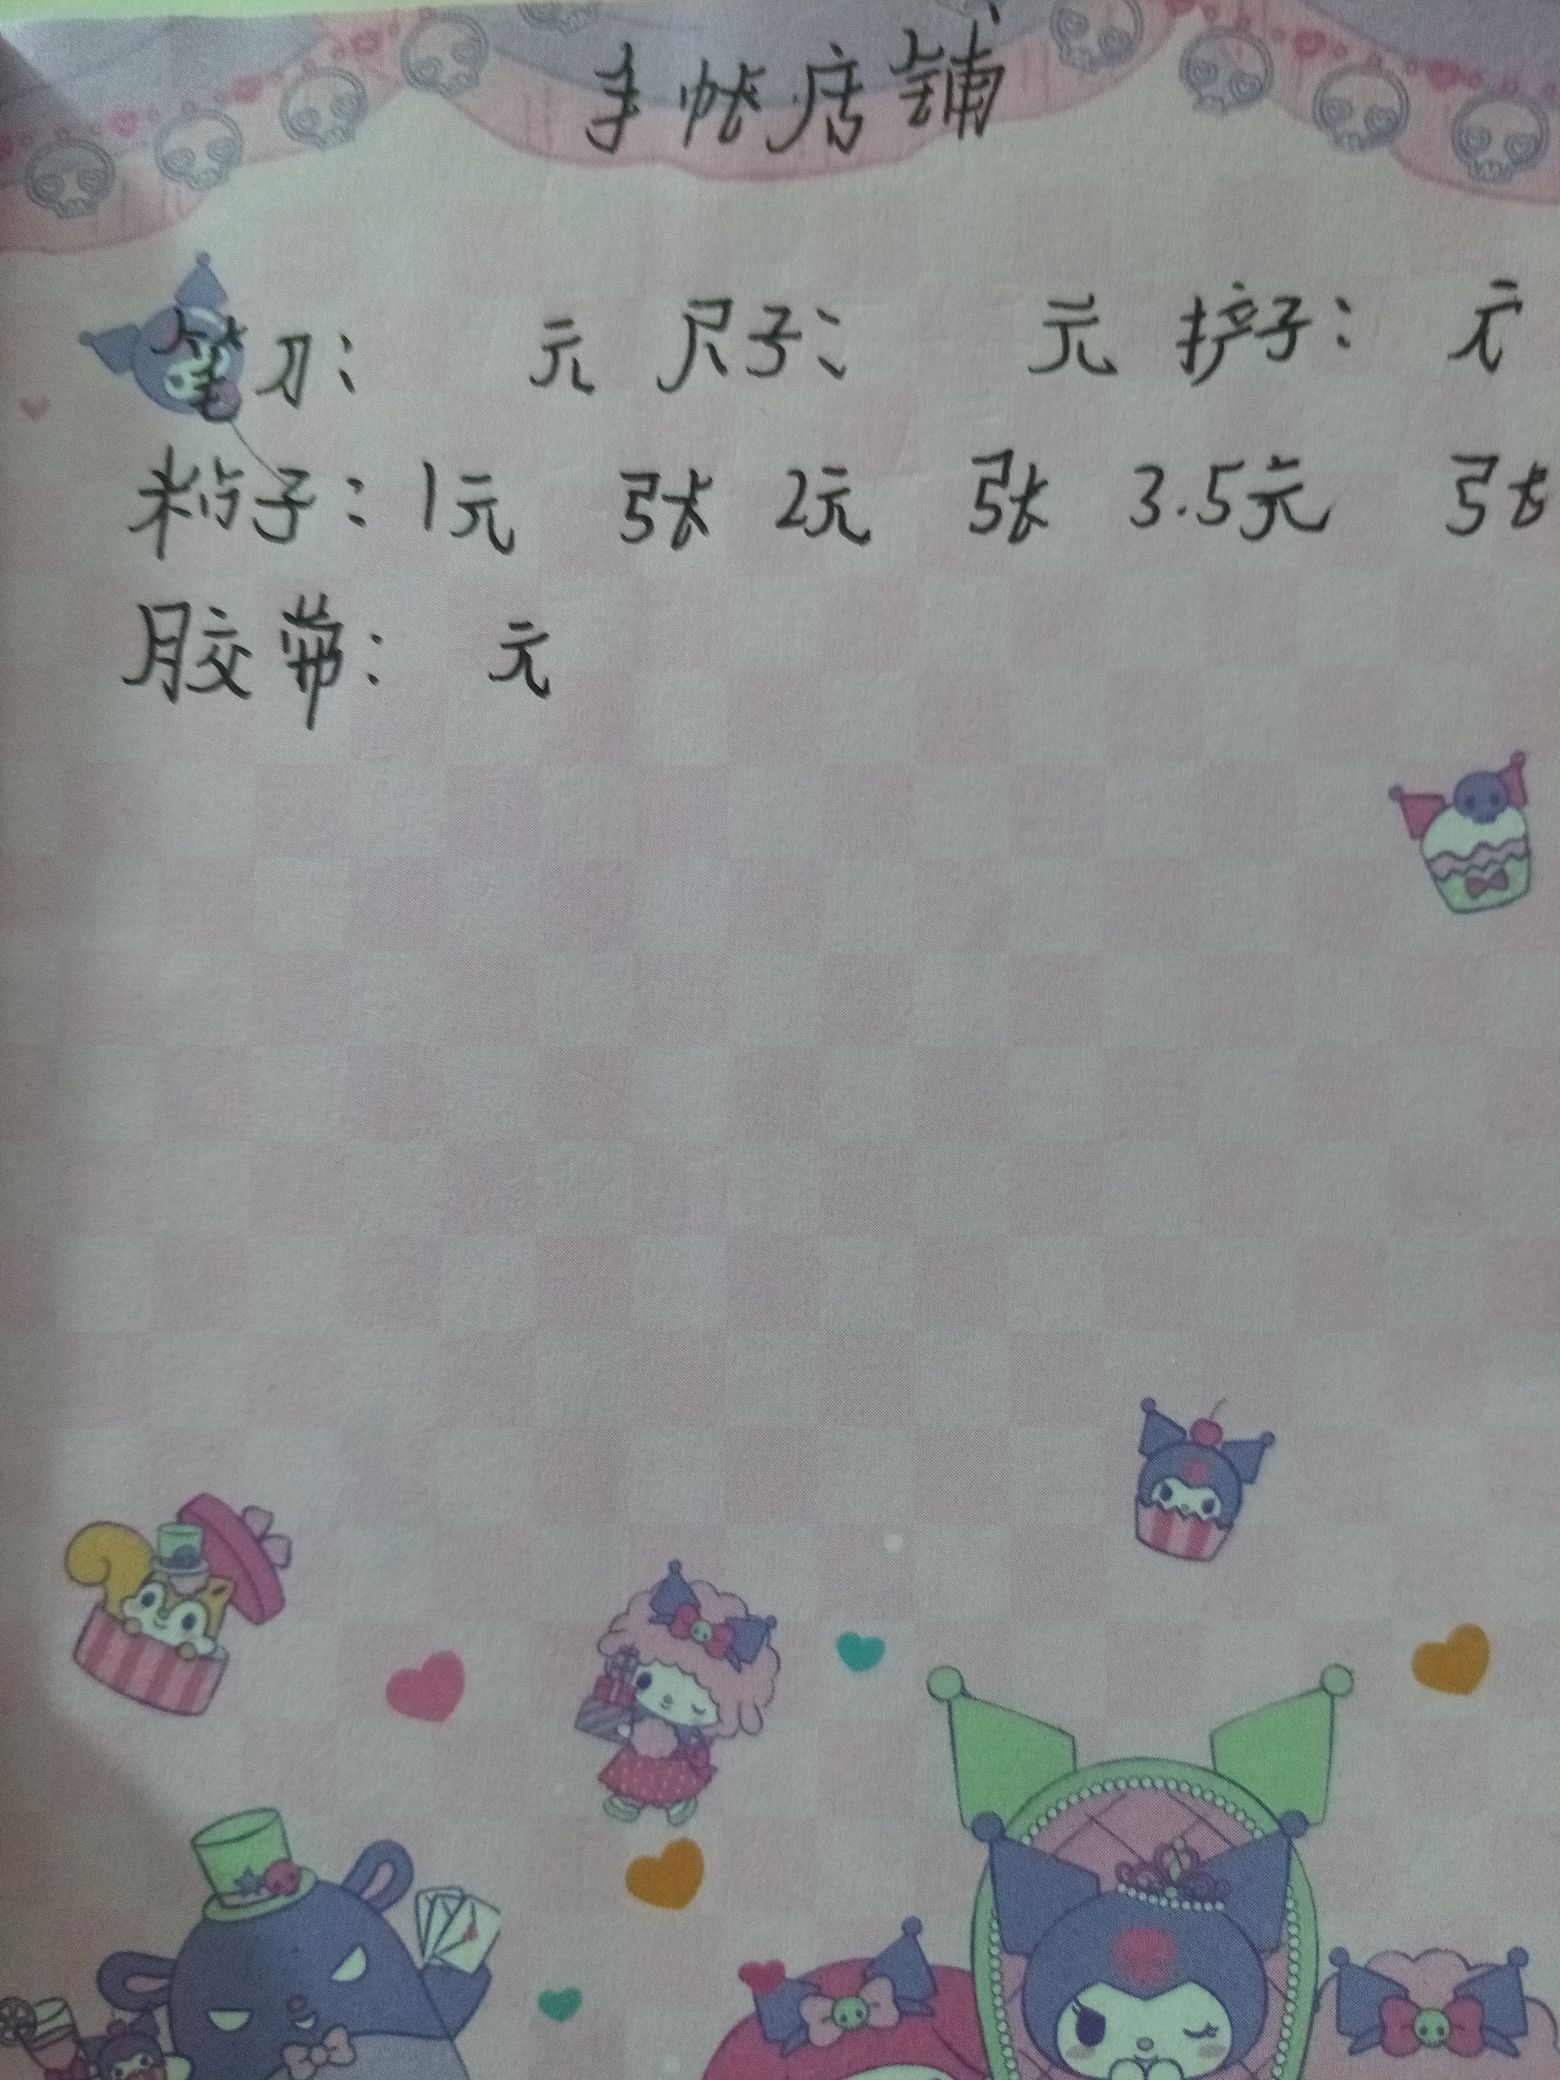 手帐店铺
笔刀： 元 尺子： 元 铲子： 元
粘子：1元 张 2元 张 3.5元 张
胶带： 元